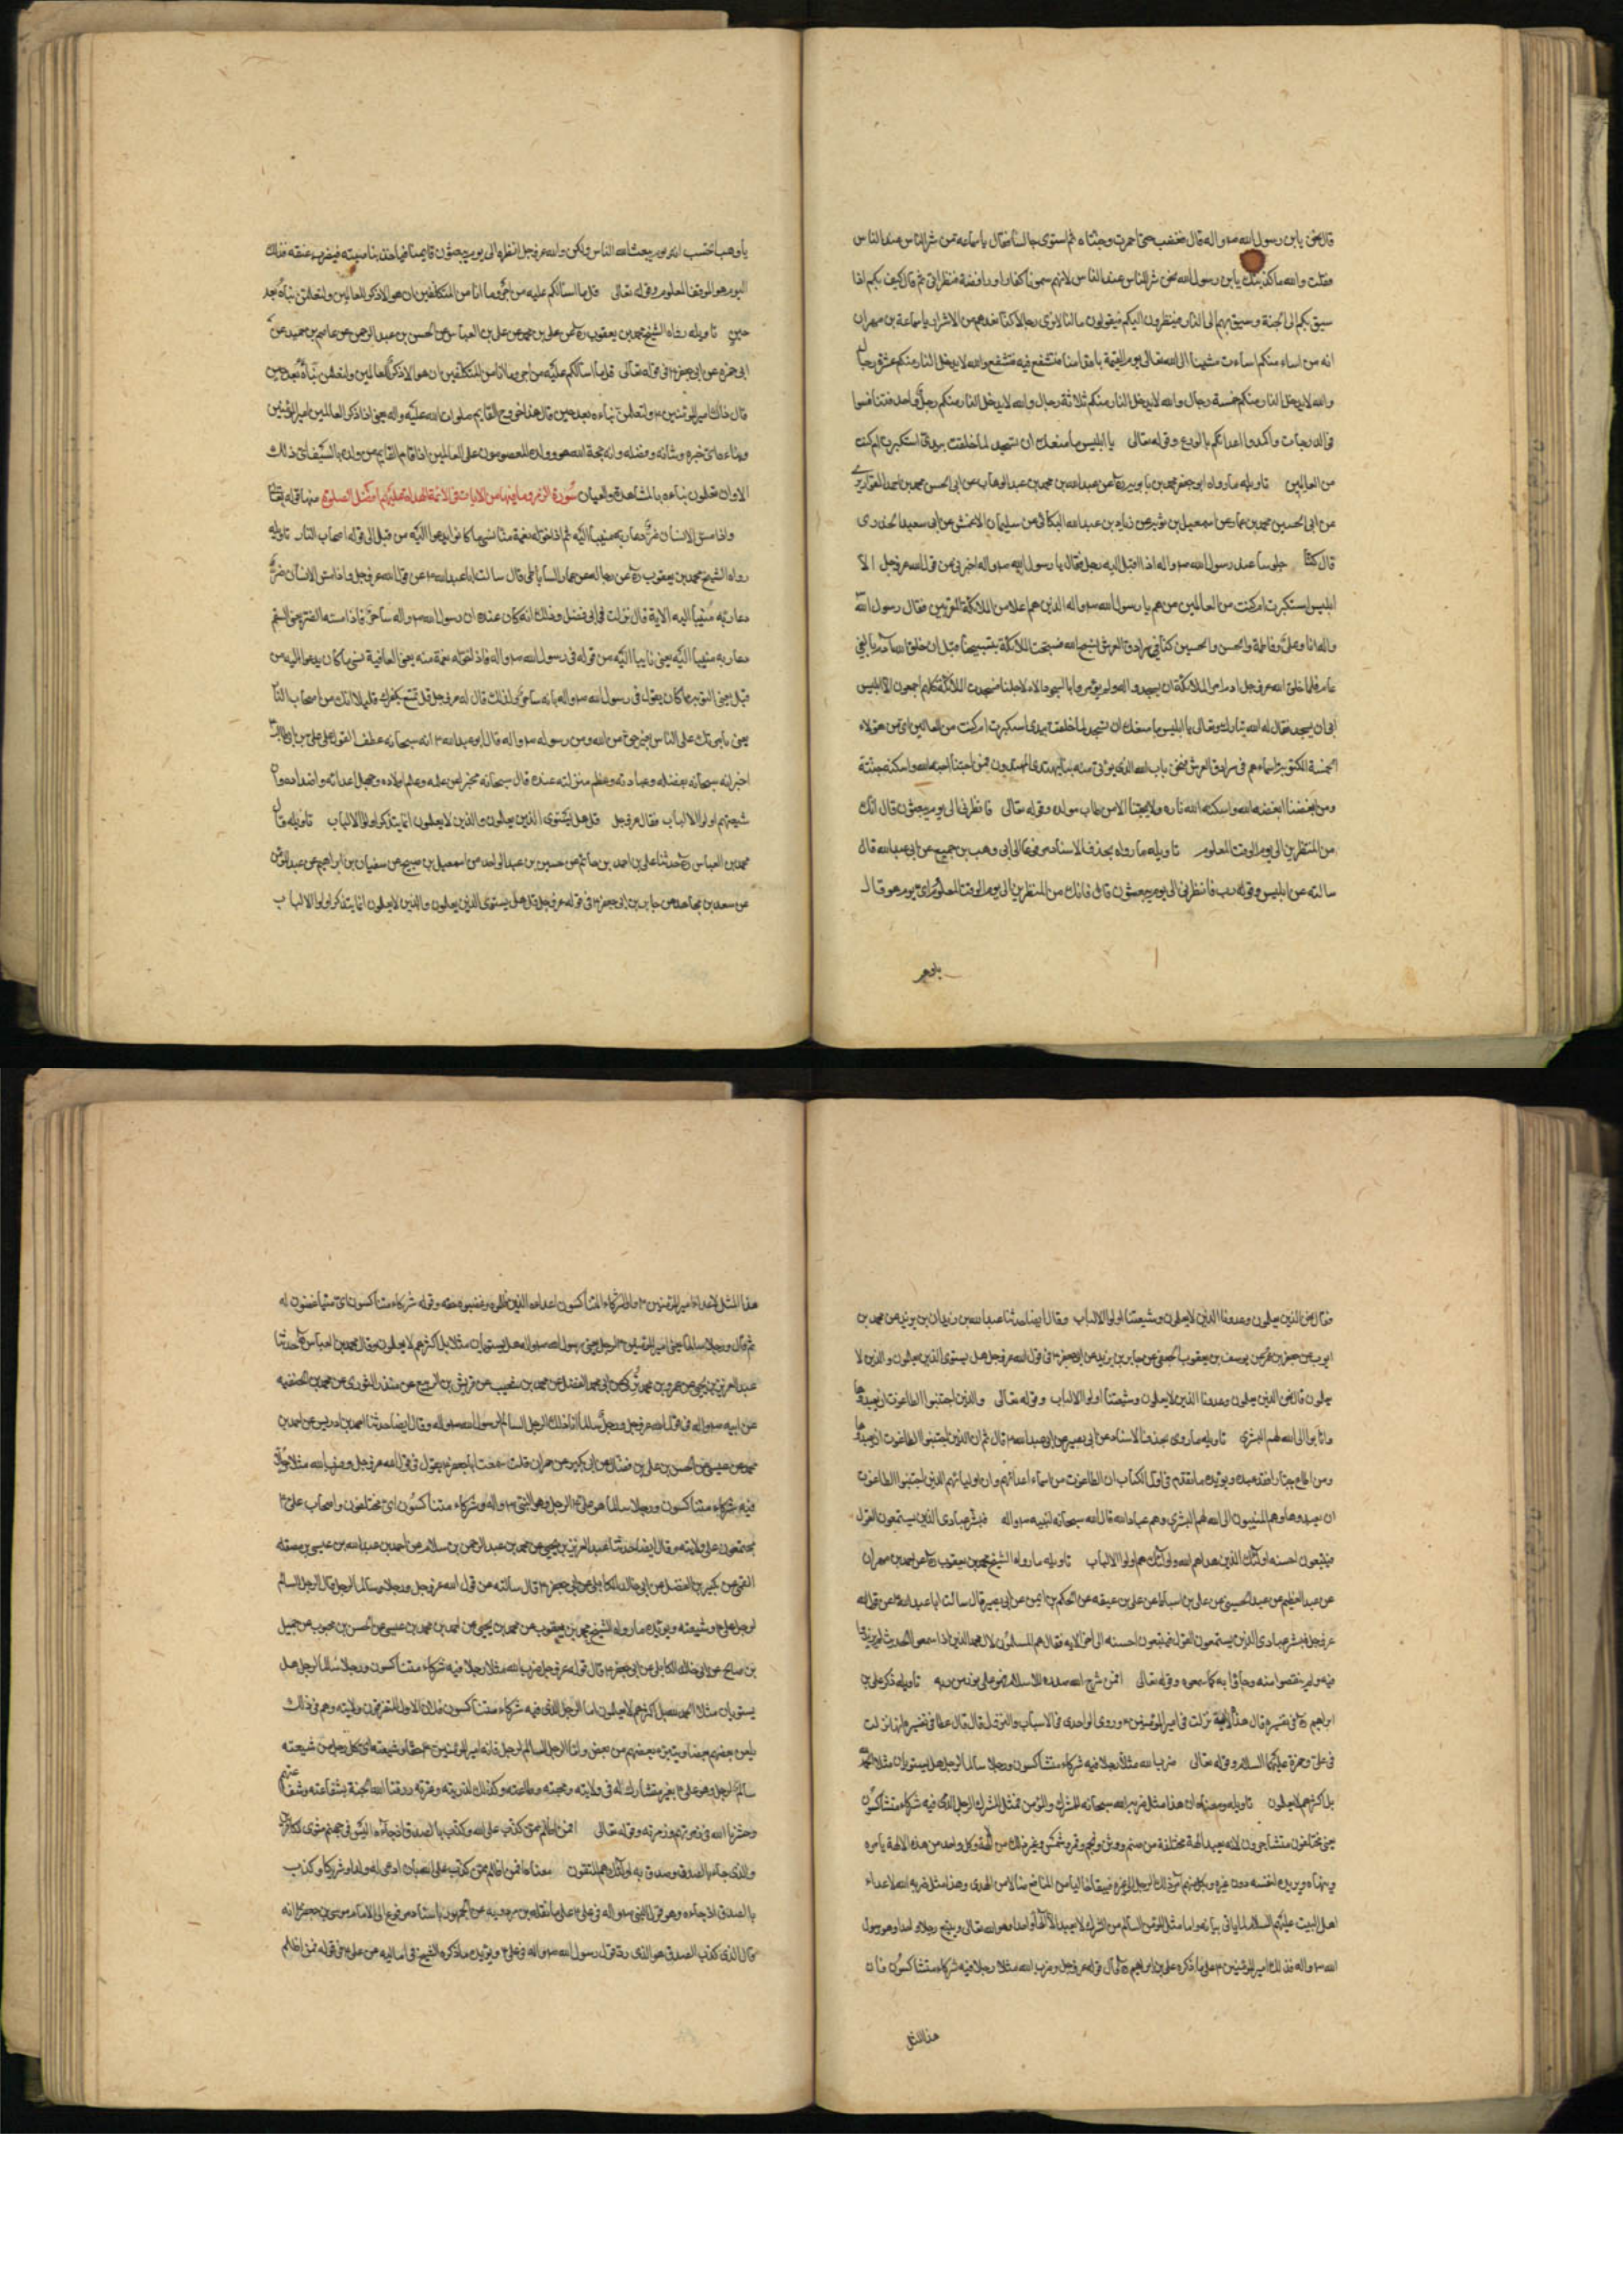 قال نحن يابن رسول الله ص واله قال فغضب حتى احمرت وجنتاه ثم استوى جالسا فقال يا سماعه من شر الناس عند الناس
فقلت والله ما كذبتك يابن رسول الله نحن شر الناس عند الناس لانهم سمونا كفارا ورافضة فنظر الى ثم قال كيف بكم اذا
سيق بكم الى الجنة وسيق بهم الى النار فينظرون اليكم فيقولون ما لنا لا نرى رجالا كنا نعدهم من الاشرار يا سماعة بن مهران
انه من اساء منكم اساءت مشينا الى الله تعالى يوم القيمة باقدامنا فنشفع فيه فنشفع والله لا يدخل النار منكم عشرة رجال
والله لا يدخل النار منكم خمسة رجال والله لا يدخل النار منكم ثلاثة رجال والله لا يدخل النار منكم رجل واحد فتنافسوا
في الدرجات واكمدوا اعدائكم بالورع وقوله تعالى يا ابليس ما منعك ان تسجد لما خلقت بيدي استكبرت ام كنت
من العالين تاويله ما رواه ابو جعفر محمد بن بابويه ره عن عبد الله بن محمد بن عبد الوهاب عن ابى الحسن محمد بن احمد القواريري
عن ابى الحسين محمد بن عمار عن اسمعيل بن ثوير عن زياد بن عبد الله البكائى عن سليمان الاعمش عن ابى سعيد الخدرى
قال كنا جلوسا عند رسول الله ص واله اذا اقبل اليه رجل فقال يا رسول الله ص واله اخبرنى عن قول الله عز وجل لا
ابليس استكبرت ام كنت من العالين من هم يا رسول الله ص واله الذين هم اعلا من الملائكة المقربين فقال رسول الله ص
واله انا وعلى وفاطمة والحسن والحسين كنا فى سرادق العرش نسبح الله فسبحت الملائكة بتسبيحنا قبل ان خلق الله آدم بالفى
عام فلما خلق الله عز وجل ادم امر الملائكة ان يسجدوا له ولم يؤمروا بالسجود الا لاجلنا فسجدت الملائكة كلهم اجمعون الا ابليس
ابى ان يسجد فقال له الله تبارك وتعالى يا ابليس ما منعك ان تسجد لما خلقت بيدى استكبرت ام كنت من العالين اى من هؤلاء
الخمسة المكتوبة اسماءهم فى سرادق العرش فنحن باب الله الذى يؤتى منه بنا يهتدى المهتدون فمن احبنا احبه الله واسكنه جنته
ومن ابغضنا ابغضه الله واسكنه الله ناره ولا يحبنا الا من طاب مولده وقوله تعالى فانظرنى الى يوم يبعثون قال انك
من المنظرين الى يوم الوقت المعلوم تاويله ما رواه بحذف الاسناد مرفوعا الى ابى وهب بن جميع عن ابى عبد الله قال
سالته عن ابليس وقوله رب فانظرنى الى يوم يبعثون قال فانك من المنظرين الى يوم الوقت المعلوم اى يوم هو قال
يا وهب
يا وهب اتحسب انه يوم يبعث الله الناس ولكن الله عز وجل انظره الى يوم يبعث فيه قايمنا فياخذ بناصيته فيضرب عنقه فذلك
اليوم هو الوقت المعلوم وقوله تعالى قل ما اسالكم عليه من اجر وما انا من المتكلفين ان هو الا ذكر للعالمين ولتعلمن نباه بعد
حين تاويله رواه الشيخ محمد بن يعقوب ره عن على بن محمد عن على بن العباس عن الحسن بن عبد الرحمن عن عاصم بن حميد عن
ابى حمزه عن ابى جعفر ع فى قوله تعالى قل ما اسالكم عليه من اجر وما انا من المتكلفين ان هو الا ذكر للعالمين ولتعلمن نباه بعد حين
قال ذاك امير المؤمنين ع ولتعلمن نباءه بعد حين قال عند خروج القايم صلوات الله عليه واله يعنى ان ذكر للعالمين امير المؤمنين
ونباءه اى خبره وشانه وفضله وانه حجة الله هو وولده المعصومون على العالمين اذا قام القايم من ولده بالسيف اى ذلك
الاوان تعلمون نباءه بالمشاهدة والعيان سورة الزمر وما فيها من الايات فى الائمة الهداة عليهم افضل الصلوة منها قوله تعالى
واذا مس الانسان ضر دعا ربه منيبا اليه ثم اذا خوله نعمة منا نسى ما كانوا يدعوا اليه من قبل الى قوله اصحاب النار تاويله
رواه الشيخ محمد بن يعقوب ره عن رجاله عن عمار الساباطى قال سالت ابا عبد الله ع عن قول الله عز وجل واذا مس الانسان ضر
دعا ربه منيبا اليه الاية قال نزلت فى ابى فضل وذلك انه كان عنده ان رسول الله ص واله ساحر فاذا مسه الضر يعنى السقم
دعا ربه منيبا اليه يعنى تايبا اليه من قوله فى رسول الله ص واله فاذا خوله نعمة منه يعنى العافية نسى ما كان يدعوا اليه من
قبل يعنى التوبة مما كان يقول فى رسول الله ص واله بانه ساحر ولذلك قال الله عز وجل قل تمتع بكفرك قليلا انك من اصحاب النار
يعنى بامرتك على الناس بغير حق من الله ومن رسوله ص واله قال ابو عبد الله ع انه سبحانه عطف القول على على بن ابى طالب
اخبر انه سبحانه بفضله وعبادته وعظم منزلته عنده قال سبحانه مخبرا عن علمه وعلم اولاده وجهل اعدائه واضداده وان
شيعتهم اولوا الالباب فقال عز وجل قل هل يستوى الذين يعلمون والذين لا يعلمون انما يتذكر اولوا الالباب تاويله قال
محمد بن العباس ره حدثنا على بن احمد بن حاتم عن حسين بن عبد الواحد عن اسمعيل بن صبيح عن سفيان بن ابراهيم عن عبد المؤمن
عن سعد بن مجاهد عن جابر بن ابى جعفر ع فى قوله عز وجل قل هل يستوى الذين يعلمون والذين لا يعلمون انما يتذكر اولوا الالباب
فقال نحن الذين يعلمون وعدونا الذين لا يعلمون وشيعتنا اولوا الالباب وقال ايضا حدثنا عبد الله بن زيدان بن يزيد عن محمد بن
ايوب عن جعفر بن عمر عن يوسف بن يعقوب الجعفى عن جابر بن يزيد عن ابى جعفر ع فى قول الله عز وجل هل يستوى الذين يعلمون والذين لا
يعلمون قال نحن الذين يعلمون وعدونا الذين لا يعلمون وشيعتنا اولوا الالباب وقوله تعالى والذين اجتنبوا الطاغوت ان يعبدوها
وانابوا الى الله لهم البشرى تاويله ما روى بحذف الاسناد عن ابى بصير عن ابى عبد الله ع قال ثم ان الذين اجتنبوا الطاغوت ان يعبدوها
ومن اطاع جبارا فقد عبده ويؤيده ما تقدم فى اول الكتاب ان الطاغوت من اسماء اعدائهم وان اوليائهم الذين اجتنبوا الطاغوت
ان يعبدوها وهم المنيبون الى الله لهم البشرى وهم عباد الله قال الله سبحانه لنبيه ص واله فبشر عبادى الذين يستمعون القول
فيتبعون احسنه اولئك الذين هداهم الله واولئك هم اولوا الالباب تاويله ما رواه الشيخ محمد بن يعقوب ره عن احمد بن مهران
عن عبد العظيم بن عبد الله الحسنى عن على بن اسباط عن على بن عقبه عن الحكم بن ايمن عن ابى بصير قال سالت ابا عبد الله ع عن قول الله
عز وجل فبشر عبادى الذين يستمعون القول فيتبعون احسنه الى اخر الايه فقال هم المسلمون لال محمد الذين اذا سمعوا الحديث لم يزيدوا
فيه ولم ينقصوا منه وجاؤا به كما سمعوه وقوله تعالى افمن شرح الله صدره للاسلام فهو على نور من ربه تاويله ذكر على بن
ابراهيم ره فى تفسيره قال هذه الاية نزلت فى امير المؤمنين ع وروى الواحدى فى الاسباب والنزول قال قال عطا فى تفسيره انها نزلت
فى على وحمزة عليهما السلام وقوله تعالى ضرب الله مثلا رجلا فيه شركاء متشاكسون ورجلا سالما لرجل هل يستويان مثلا الحمد لله
بل اكثرهم لا يعلمون تاويله ومعناه ان هذا مثل ضربه الله سبحانه للمشرك والمؤمن فمثل المشرك الرجل الذى فيه شركاء متشاكسون
يعنى مختلفون متشاجرون لانه يعبد الهة مختلفة من صنم ووثن ونجم وقمر وشمس وغير ذلك من الهة وكل واحد من هذه الالهة يامره
وينهاه ويريده لنفسه دون غيره ويكل منهم امر ذلك الرجل الى غيره فيبقى خاليا من المنافع ضالا من الهدى وهذا مثل ضربه الله لاعداء
اهل البيت عليهم السلام لما ياتى بيانه واما مثل المؤمن السالم من الشرك لا يعبد الا الها واحدا وهو الله تعالى ويتبع رجلا واحدا وهو رسول
الله ص واله فذلك امير المؤمنين ع على ما ذكره على بن ابراهيم ره قال قوله عز وجل وضرب الله مثلا رجلا فيه شركاء متشاكسون فان
هذا المثل
هذا المثل لاعداء امير المؤمنين ع والشركاء المتشاكسون اعداءه الذين ظلموه وغصبوه حقه وقوله شركاء متشاكسون اى متباغضون له
ثم قال ورجلا سالما يعنى امير المؤمنين ع لرجل يعنى رسول الله ص واله هل يستويان مثلا بل اكثرهم لا يعلمون وقال محمد بن العباس ره حدثنا
عبد العزيز بن يحيى عن عمرو بن محمد بن تركى عن محمد بن الفضل عن محمد بن شعيب عن قريش بن الربيع عن منذر الثورى عن محمد بن الحنفيه
عن ابيه ص واله فى قول الله عز وجل ورجلا سالما انا ذلك الرجل السالم لرسول الله ص واله وقال ايضا حدثنا احمد بن ادريس عن احمد بن
محمد بن عيسى عن الحسن بن على بن فضال عن ابى بكير عن حمران قلت سمعت ابا جعفر ع يقول فى قول الله عز وجل وضرب الله مثلا رجلا
فيه شركاء متشاكسون ورجلا سالما هو على ع الرجل وهو النبى ص واله وشركاء متشاكسون اى مختلفون واصحاب على ع
مجتمعون على ولايته وقال ايضا حدثنا عبد العزيز بن يحيى عن محمد بن عبد الرحمن بن سلام عن احمد بن عبد الله بن عيسى بن مصقله
القمى عن بكير بن الفضل عن ابى خالد الكابلى عن ابى جعفر ع قال سالته عن قول الله عز وجل ورجلا سالما لرجل قال الرجل السالم
لرجل على ع وشيعته ويؤيده ما رواه الشيخ محمد بن يعقوب عن محمد بن يحيى عن احمد بن محمد بن عيسى عن الحسن بن محبوب عن جميل
بن صالح عن ابى خالد الكابلى عن ابى جعفر ع قال قوله عز وجل ضرب الله مثلا رجلا فيه شركاء متشاكسون ورجلا سالما لرجل هل
يستويان مثلا الحمد لله بل اكثرهم لا يعلمون اما الرجل الذى فيه شركاء متشاكسون فلان الاول المتفرقون ولايته وهم فى ذلك
يلعن بعضهم بعضا ويتبرء بعضهم من بعض واما الرجل السالم لرجل فانه امير المؤمنين ع حقا وشيعته اى كل رجل من شيعته
سالم لرجل وهو على ع بغير مشارك له فى ولايته ومحبته وطاعته وكذلك لذريته وعترته رزقنا الله الجنة بشفاعته وشفاعتهم
وحشرنا الله فى زمرتهم وزمرته وقوله تعالى افمن اظلم ممن كذب على الله وكذب بالصدق اذ جاءه اليس فى جهنم مثوى للكافرين
والذى جاء بالصدق وصدق به اولئك هم المتقون معناه فمن اظلم ممن كذب على الله بان ادعى له ولدا وشريكا وكذب
بالصدق اذ جاءه وهو قول النبى ص واله فى على ع على ما نقله بن مردويه عن الجمهور باسناده مرفوع الى الامام موسى بن جعفر ع انه
قال الذى كذب الصدق هو الذى رد قول رسول الله ص واله فى على ع ويؤيده ما ذكره الشيخ فى اماليه عن على ع فى قوله فمن اظلم